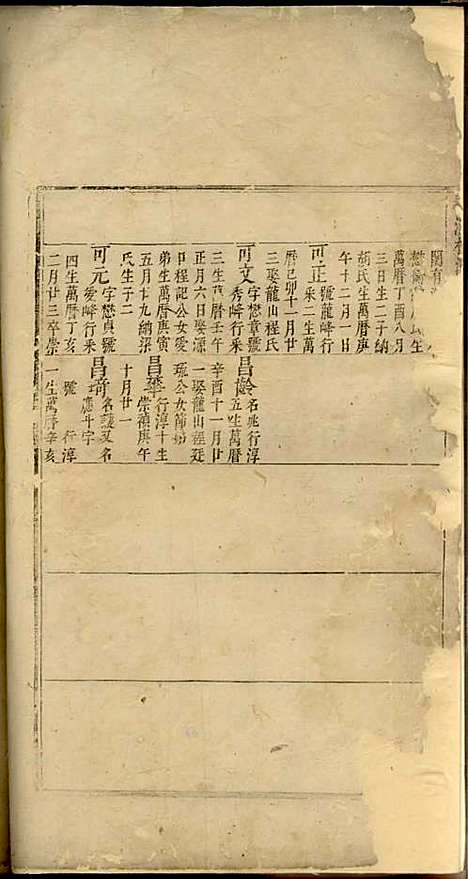 閣有
懋衡
萬曆丁酉八月
三日生二子納
胡氏生萬曆庚
午十二月一日
可正 號龍峰行
采二生萬
曆己卯十一月廿
三娶龍山程氏
可文 字懋章號
秀峰行采
三生萬曆壬午
正月六日娶源
口程記公女愛
弟生萬曆庚寅
五月廿九納梁
氏生子二
可元 字懋貞號
愛峰行采
四生萬曆丁亥
二月廿三卒崇
昌齡 名兆行淳
五生萬曆
辛酉十一月廿
一娶龍山程廷
琉公女節姑
昌華 行淳十生
崇禎庚午
十月廿一
昌琦 名護又名
應斗字
號 行淳
一生萬曆辛亥